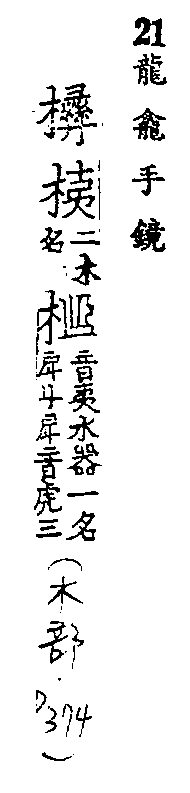 21龍龕手鏡
桋
二木
名
音夷水器一名
戽斗戽音虎三
(木部·P374)